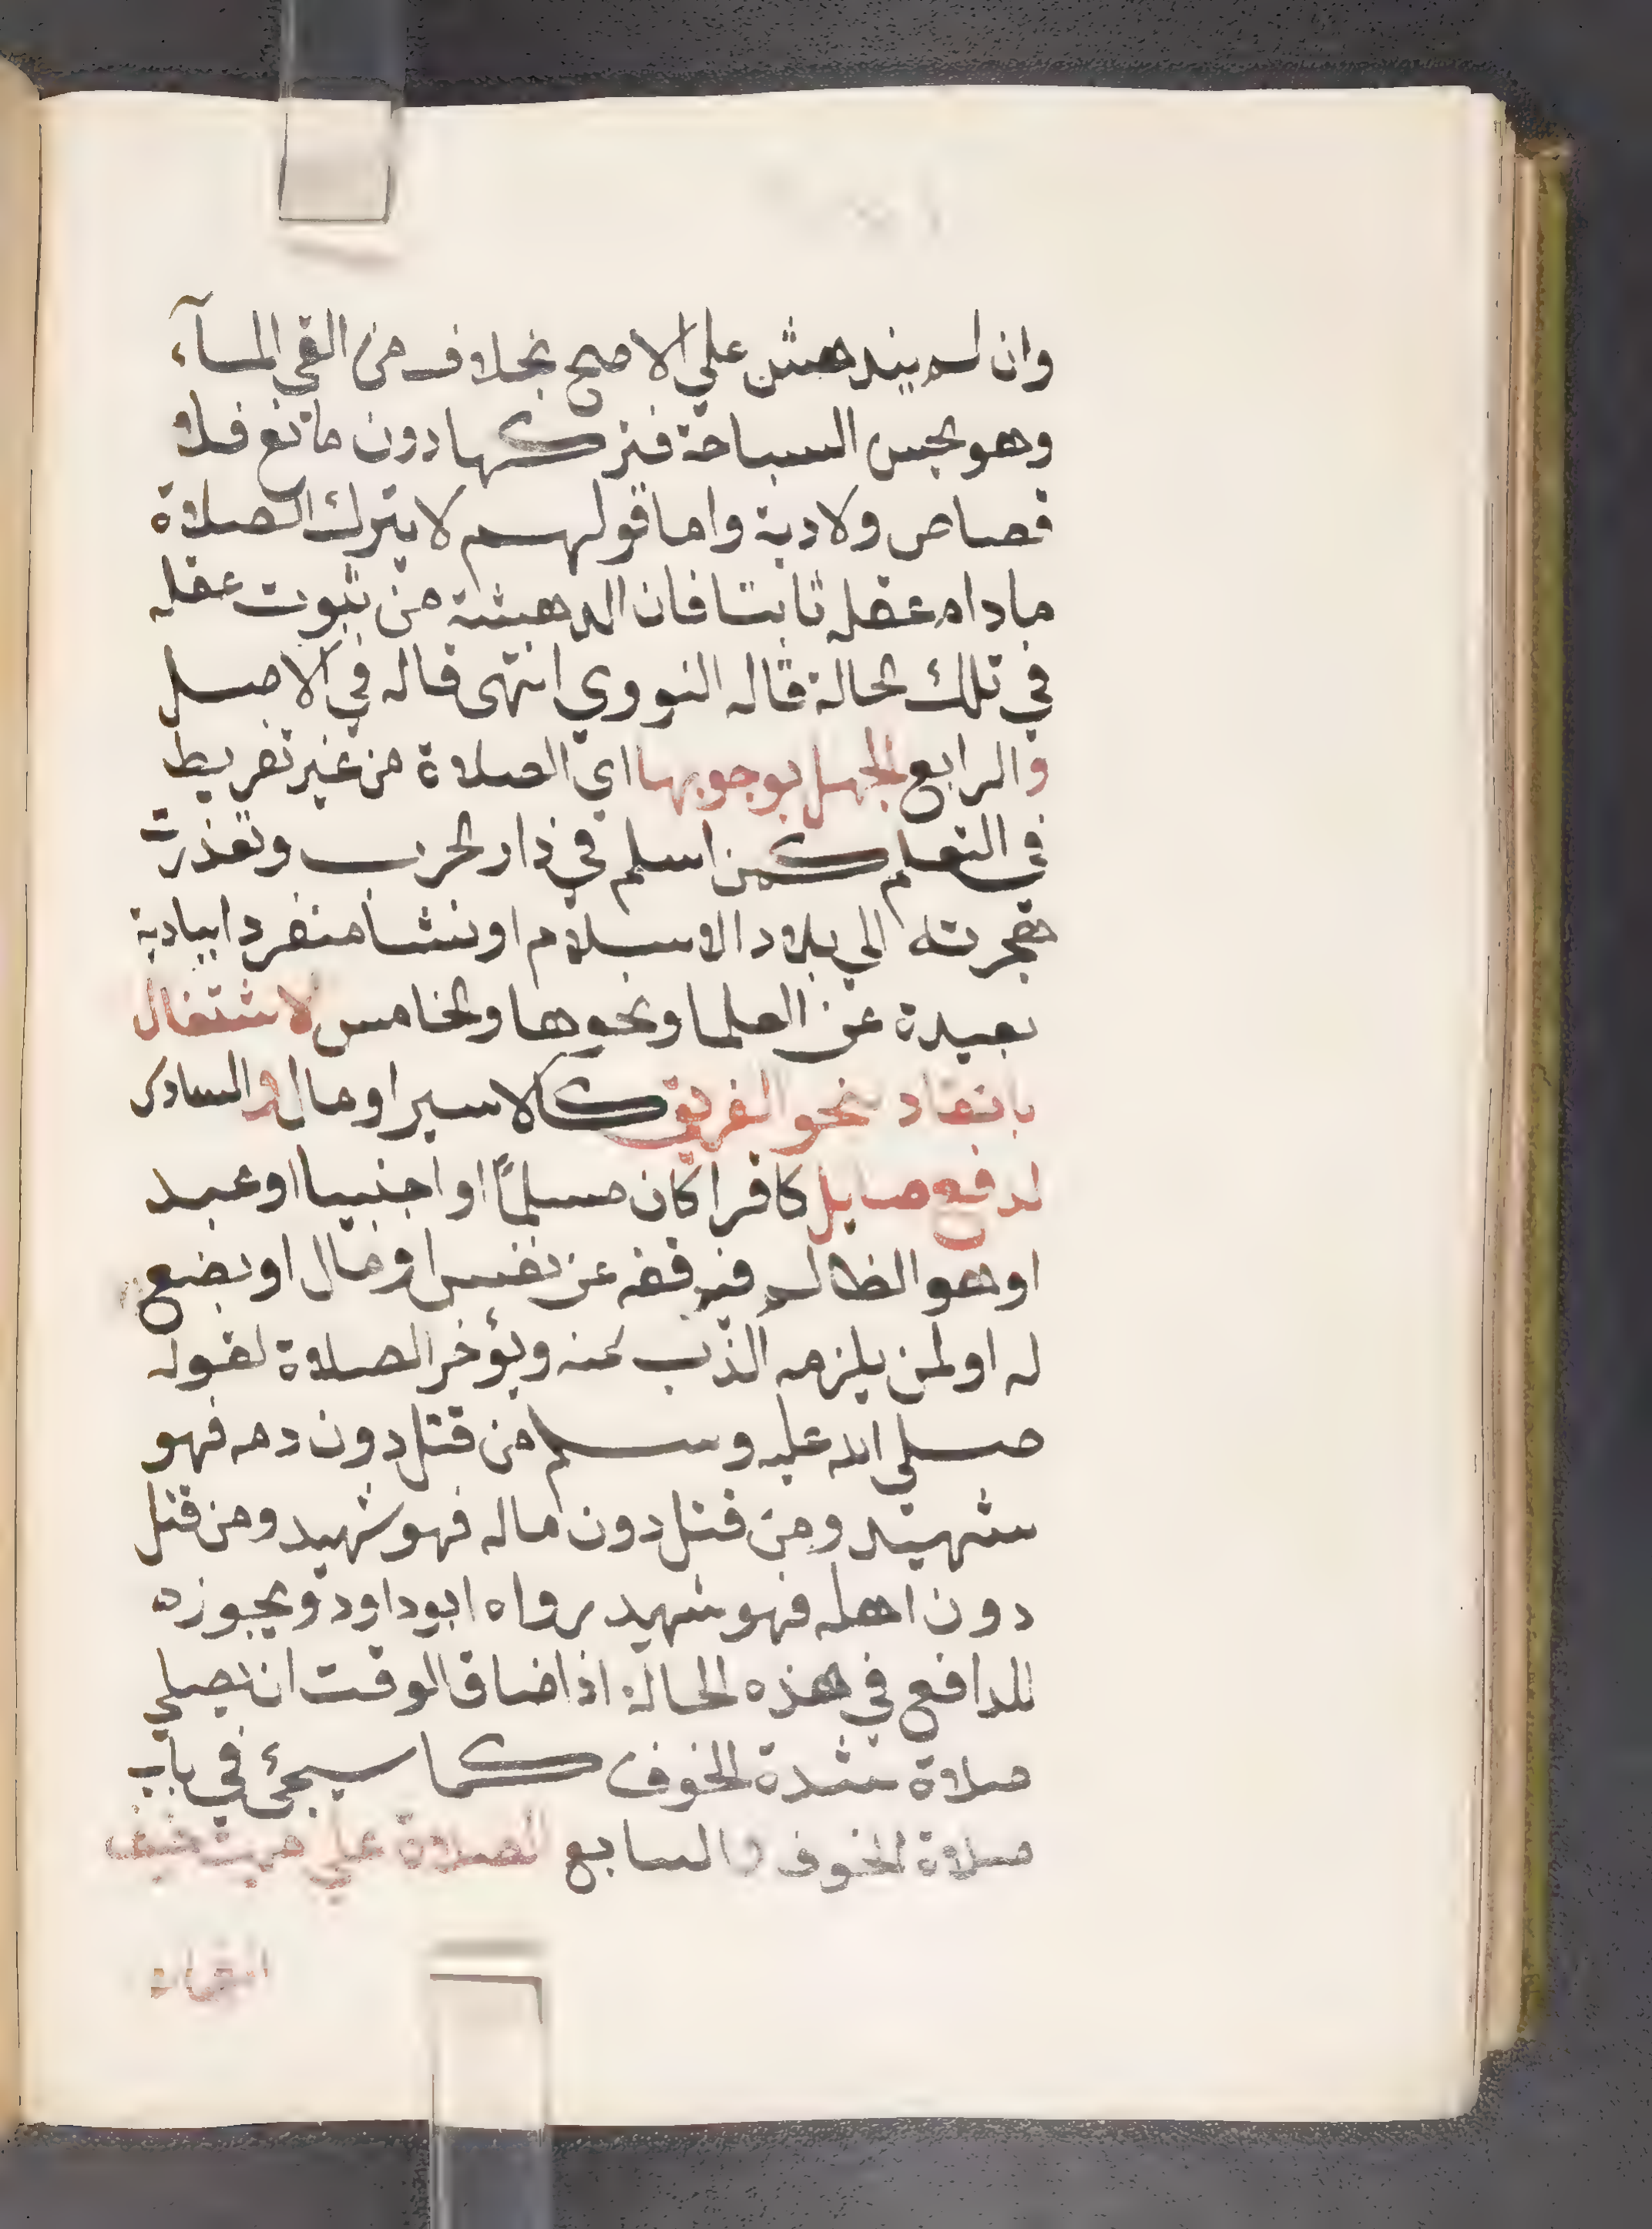 وان لم يندهش علي الاصح بخلاف من القي المآء
وهو يحسن السباحة فيتركها دون مانع فلا
قصاص ولا دية واما قولهم لا يترك الصلاة
مادام عقله ثابتا فان الدهشة من ثبوت عقله
في تلك الحالة قاله النووي انتهى قاله في الاصل
والرابع الجهل بوجوبها اي الصلاة من غير تفريط
في التعلم كمن اسلم في دار الحرب وتعذرت
هجرته الي بلاد الاسلام او نشا منفردا ببادية
بعيدة عن العلما ونحوها والخامس لاشتغال
بانقاد نحو الغريق كالاسير او مال والسادس
لدفع صايل كافرا كان مسلمًا او اجنبيا او عبد
او هو الظالم فيدفعه عن نفس او مال او بضع
له او لمن يلزمه الذب عنه ويؤخر الصلاة لقوله
صلي الله عليه وسلم من قتل دون دمه فهو
شهيد ومن قتل دون ماله فهو شهيد ومن قتل
دون اهله فهو شهيد رواه ابوداود ويجوزه
للدافع في هذه الحالة اذا ضاق الوقت ان يصلي
صلاة شدة الخوف كما سيجئ في باب
صلاة الخوف والسابع الصلاة علي ميت خيف